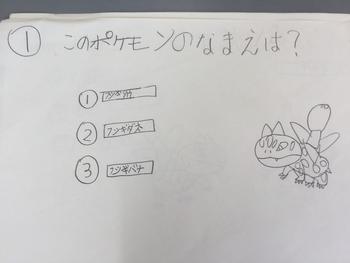 ① このポケモンのなまえは？
①
② フシギダネ
③ フシギバナ